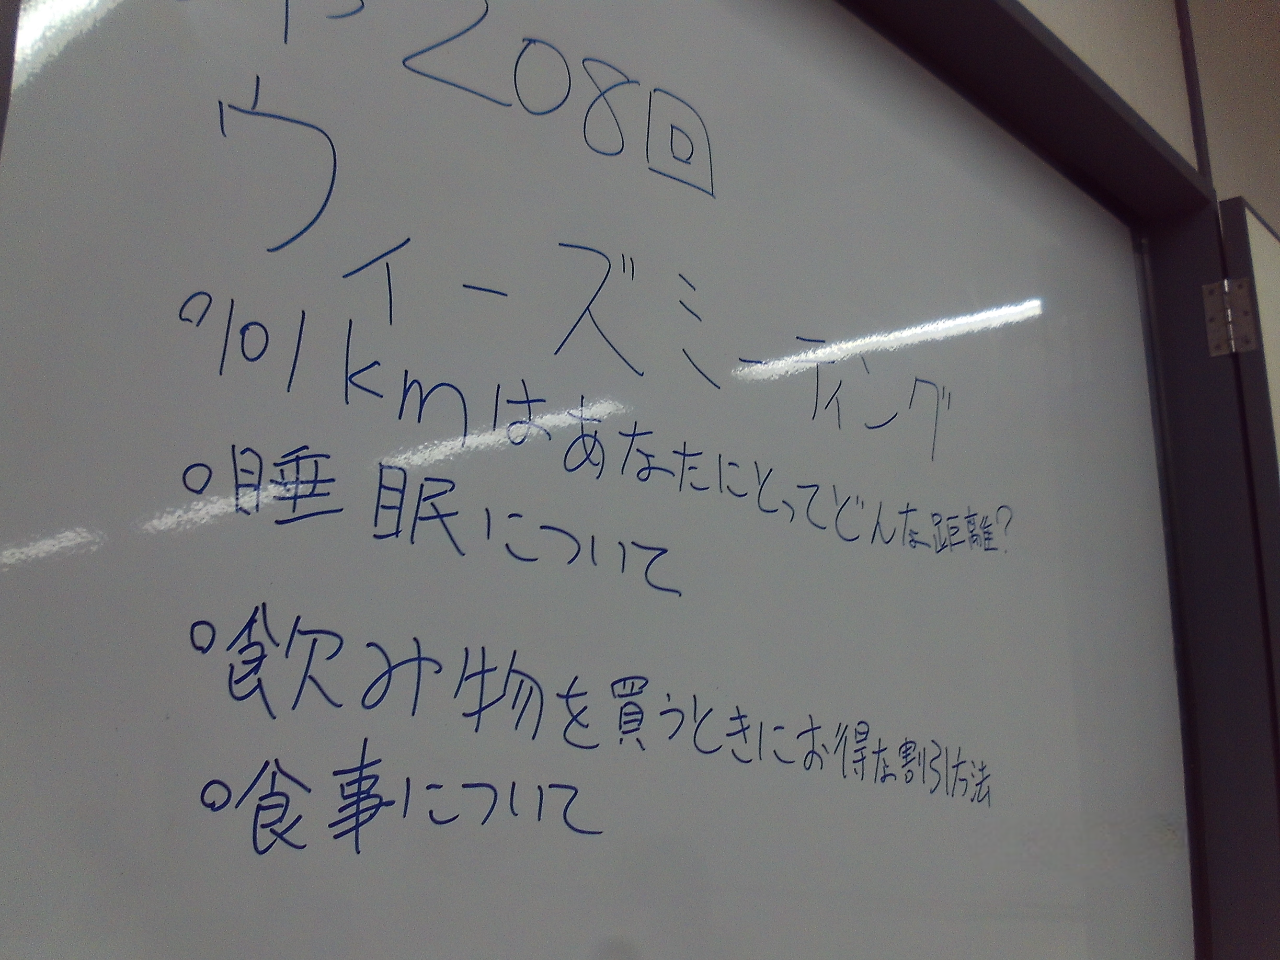 208回
ウィーズミーティング
○101kmはあなたにとってどんな距離?
○睡眠について
○飲み物を買うときにお得な割引方法
○食事について